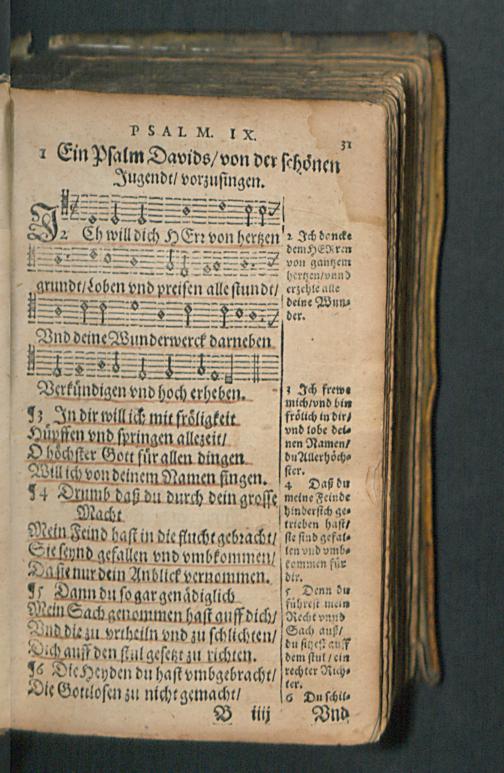 PSALM. IX.
31
1 Ein Psalm Davids/ von der schönen
Jugendt/ vorzusingen.
J2. Ch will dich HErr von hertzen
grundt/ Loben vnd preisen alle stundt/
Vnd deine Wunderwerck darneben
Verkündigen vnd hoch erheben.
¶3 In dir will ich mit fröligkeit
Hüpffen vnd springen allezeit/
O höchster Gott für allen dingen
Will ich von deinem Namen singen.
¶4 Drumb daß du durch dein grosse
Macht
Mein Feind hast in die flucht gebracht/
Sie seynd gefallen vnd vmbkommen/
Da sie nur dein Anblick vernommen.
¶5 Dann du so gar genädiglich
Mein Sach genommen hast auff dich/
Vnd die zu vrtheiln vnd zu schlichten/
Dich auff den stul gesetzt zu richten.
¶6 Die Heyden du hast vmbgebracht/
Die Gottlosen zu nicht gemacht/
B iiij
Vnd
2 Ich dancke
dem HERren
von gantzem
hertzen/ vnnd
erzehle alle
deine Wun-
der.
3 Ich frewe
mich/ vnd bin
frölich in dir/
vnd lobe dei-
nen Namen/
du Allerhöch-
ster.
4 Daß du
meine Feinde
hindersich ge-
trieben hast/
sie sind gefal-
len vnd vmb-
kommen für
dir.
5 Denn du
führest mein
Recht vnnd
Sach auß/
du sitzest auff
dem stul/ ein
rechter Rich-
ter.
6 Du schil-